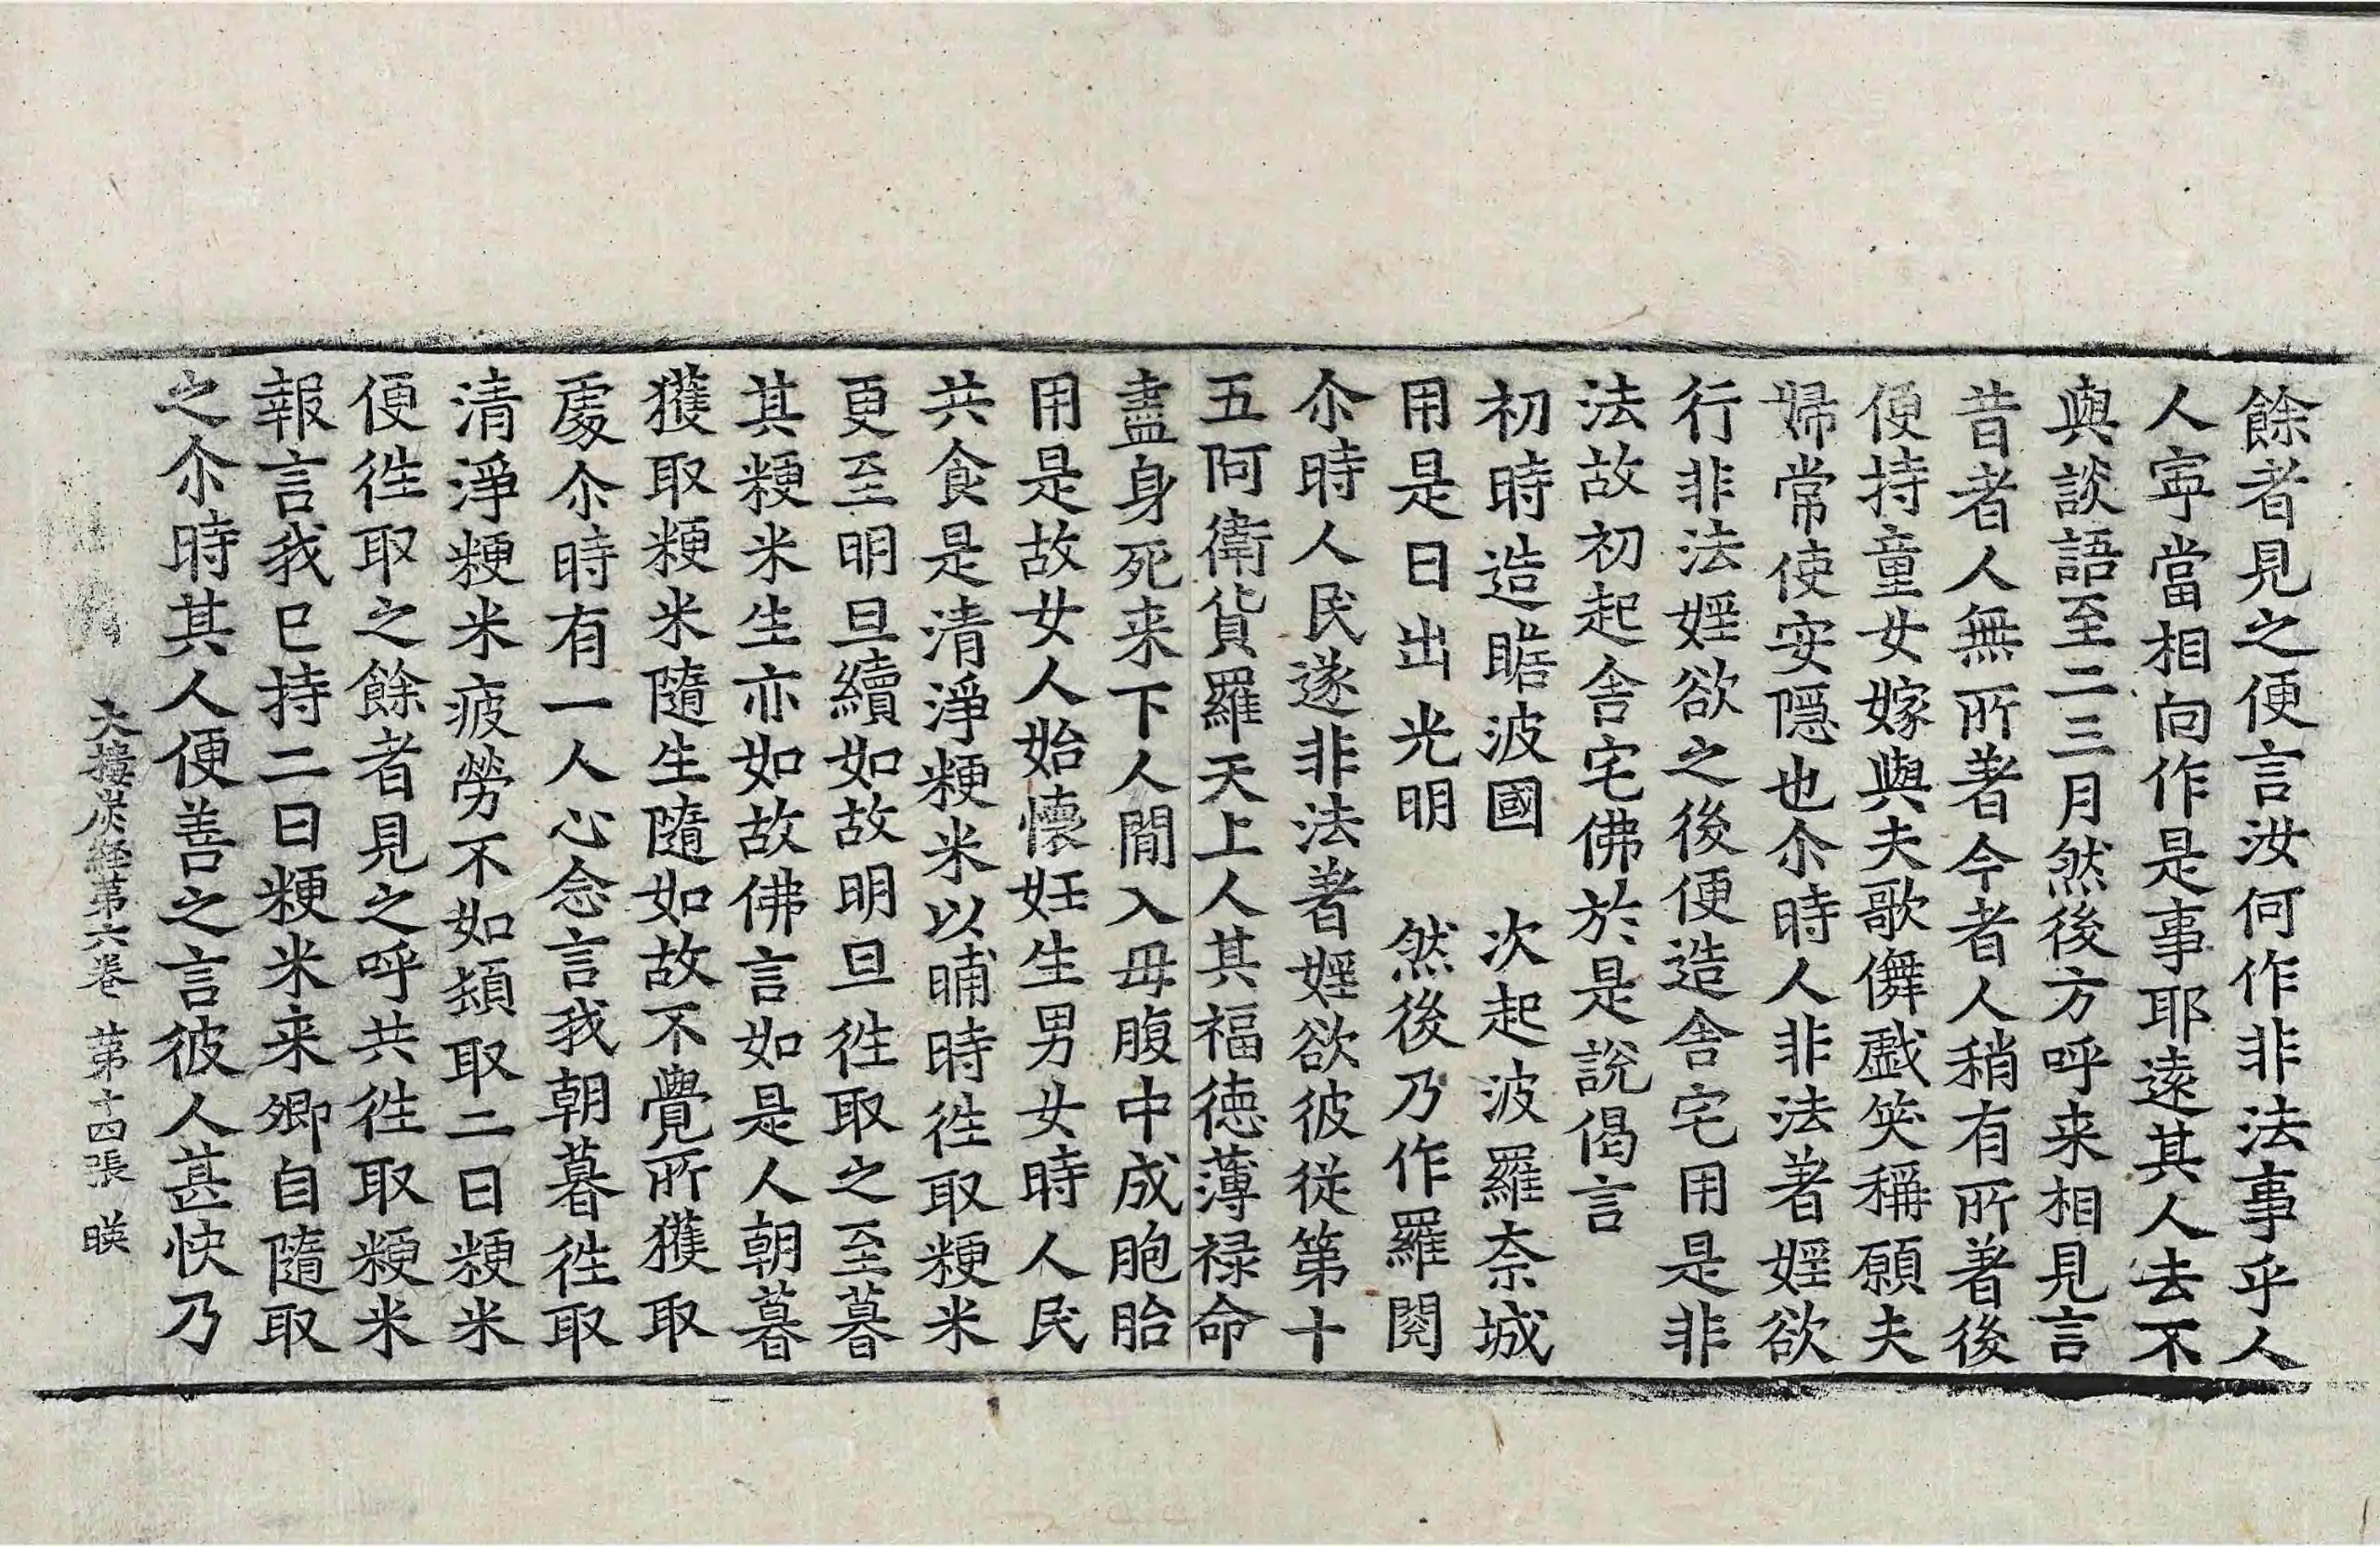 餘者見之便言汝何作非法事乎人
人寧當相向作是事耶遠其人去不
與談語至二三月然後方呼来相見言
昔者人無所著今者人稍有所著後
便持童女嫁與夫歌儛戲笑稱願夫
婦常使安隱也尒時人非法著婬欲
行非法婬欲之後便造舍宅用是非
法故初起舍宅佛於是說偈言
初時造瞻波國　次起波羅奈城
用是日出光明　然後乃作羅閱
尒時人民遂非法著婬欲彼從第十
五阿衛貨羅天上人其福德薄禄命
盡身死来下人間入母腹中成胞胎
用是故女人始懷妊生男女時人民
共食是清淨粳米以晡時徃取粳米
更至明旦續如故明旦徃取之至暮
其粳米生亦如故佛言如是人朝暮
獲取粳米隨生隨如故不覺所獲取
處尒時有一人心念言我朝暮徃取
清淨粳米疲勞不如頻取二日粳米
便徃取之餘者見之呼共徃取粳米
報言我已持二日粳米来卿自隨取
之尒時其人便善之言彼人甚快乃
大樓炭經第六卷　第十四張　暎